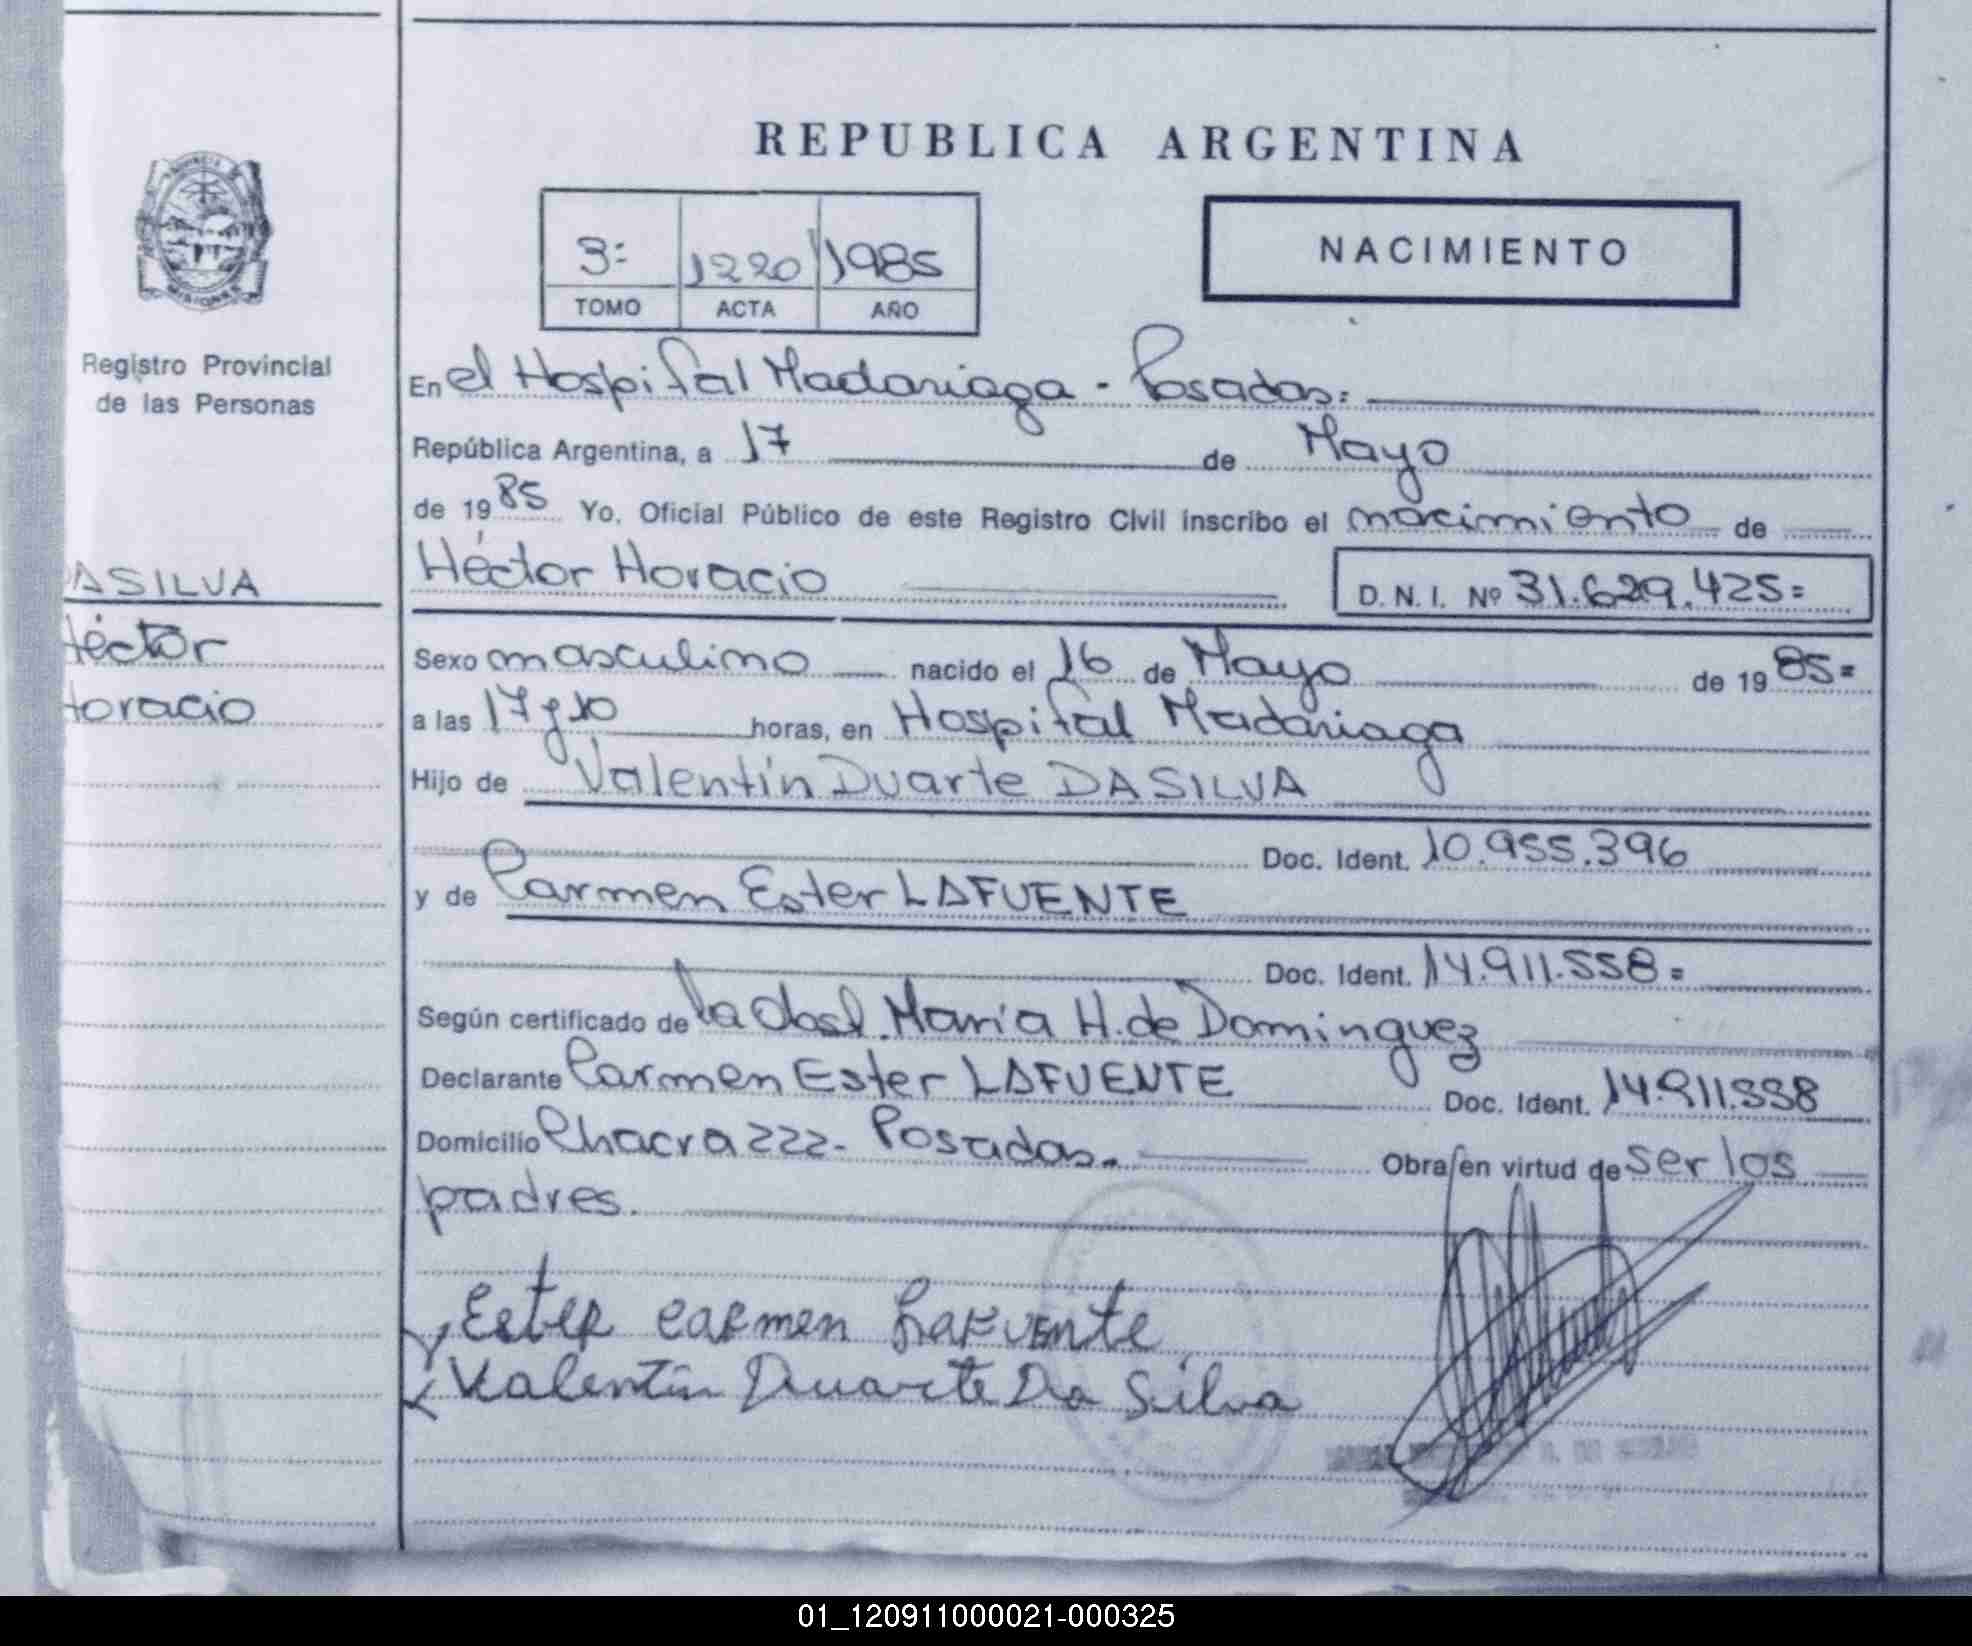 REPUBLICA ARGENTINA
3= 1220 1985
TOMO ACTA AÑO
NACIMIENTO
PROVINCIA
MISIONES
Registro Provincial
de las Personas
ASILVA
Héctor
Horacio
En el Hospital Madariaga - Posadas.
República Argentina, a 17 de Mayo
de 1985 Yo, Oficial Público de este Registro Civil inscribo el nacimiento de
Héctor Horacio D.N.I. Nº 31.629.425=
Sexo masculino nacido el 16 de Mayo de 1985=
a las 17 y 10 horas, en Hospital Madariaga
Hijo de Valentín Duarte DASILVA
Doc. Ident. 10.955.396
y de Carmen Ester LAFUENTE
Doc. Ident. 14.911.558=
Según certificado de la Obst. María H. de Dominguez
Declarante Carmen Ester LAFUENTE Doc. Ident. 14.911.558
Domicilio Chacra 222- Posadas. Obra/en virtud de ser los
padres.
Ester carmen LaFuente
Valentin Duarte Da Silva
01_120911000021-000325